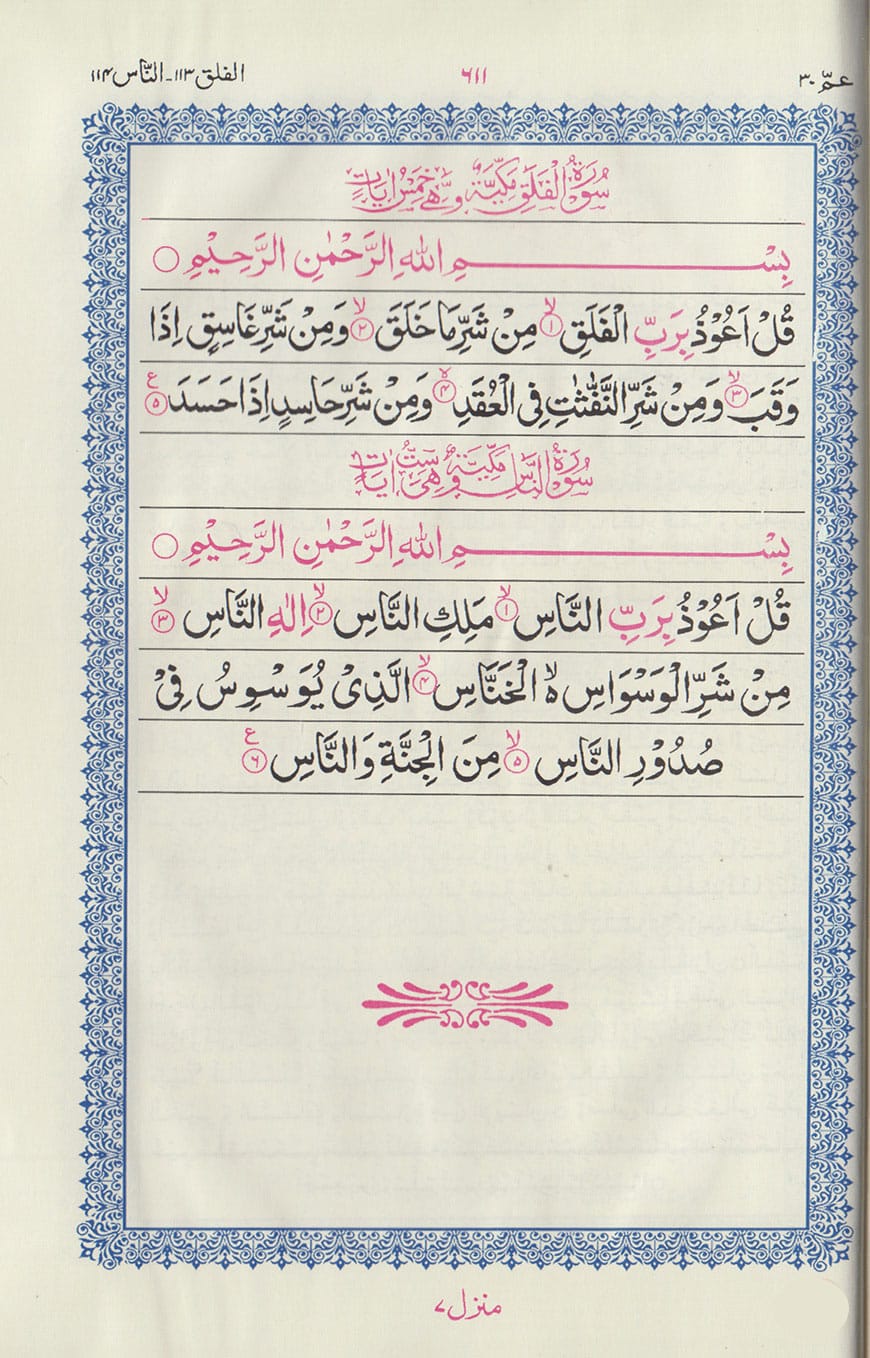 عمّ ٣٠ ٦١١ الفلق ١١٣ - النّاس ١١٤
سُوْرَةُ الْفَلَقِ مَكِّيَّةٌ وَّهِيَ خَمْسُ اٰيَاتٍ
بِسْمِ اللّٰهِ الرَّحْمٰنِ الرَّحِيْمِ ○
قُلْ اَعُوْذُ بِرَبِّ الْفَلَقِ ۙ‏﴿۱﴾ مِنْ شَرِّ مَا خَلَقَ ۙ‏﴿۲﴾ وَمِنْ شَرِّ غَاسِقٍ اِذَا
وَقَبَ ۙ‏﴿۳﴾ وَمِنْ شَرِّ النَّفّٰثٰتِ فِى الْعُقَدِ ۙ‏﴿۴﴾ وَمِنْ شَرِّ حَاسِدٍ اِذَا حَسَدَ ﴿۵﴾ ع
سُوْرَةُ النَّاسِ مَكِّيَّةٌ وَّهِيَ سِتُّ اٰيَاتٍ
بِسْمِ اللّٰهِ الرَّحْمٰنِ الرَّحِيْمِ ○
قُلْ اَعُوْذُ بِرَبِّ النَّاسِ ۙ‏﴿۱﴾ مَلِكِ النَّاسِ ۙ‏﴿۲﴾ اِلٰهِ النَّاسِ ۙ‏﴿۳﴾
مِنْ شَرِّ الْوَسْوَاسِ ۙ الْخَنَّاسِ ۙ‏﴿۴﴾ الَّذِىْ يُوَسْوِسُ فِىْ
صُدُوْرِ النَّاسِ ۙ‏﴿۵﴾ مِنَ الْجِنَّةِ وَالنَّاسِ ﴿۶﴾ ع
منزل ٧